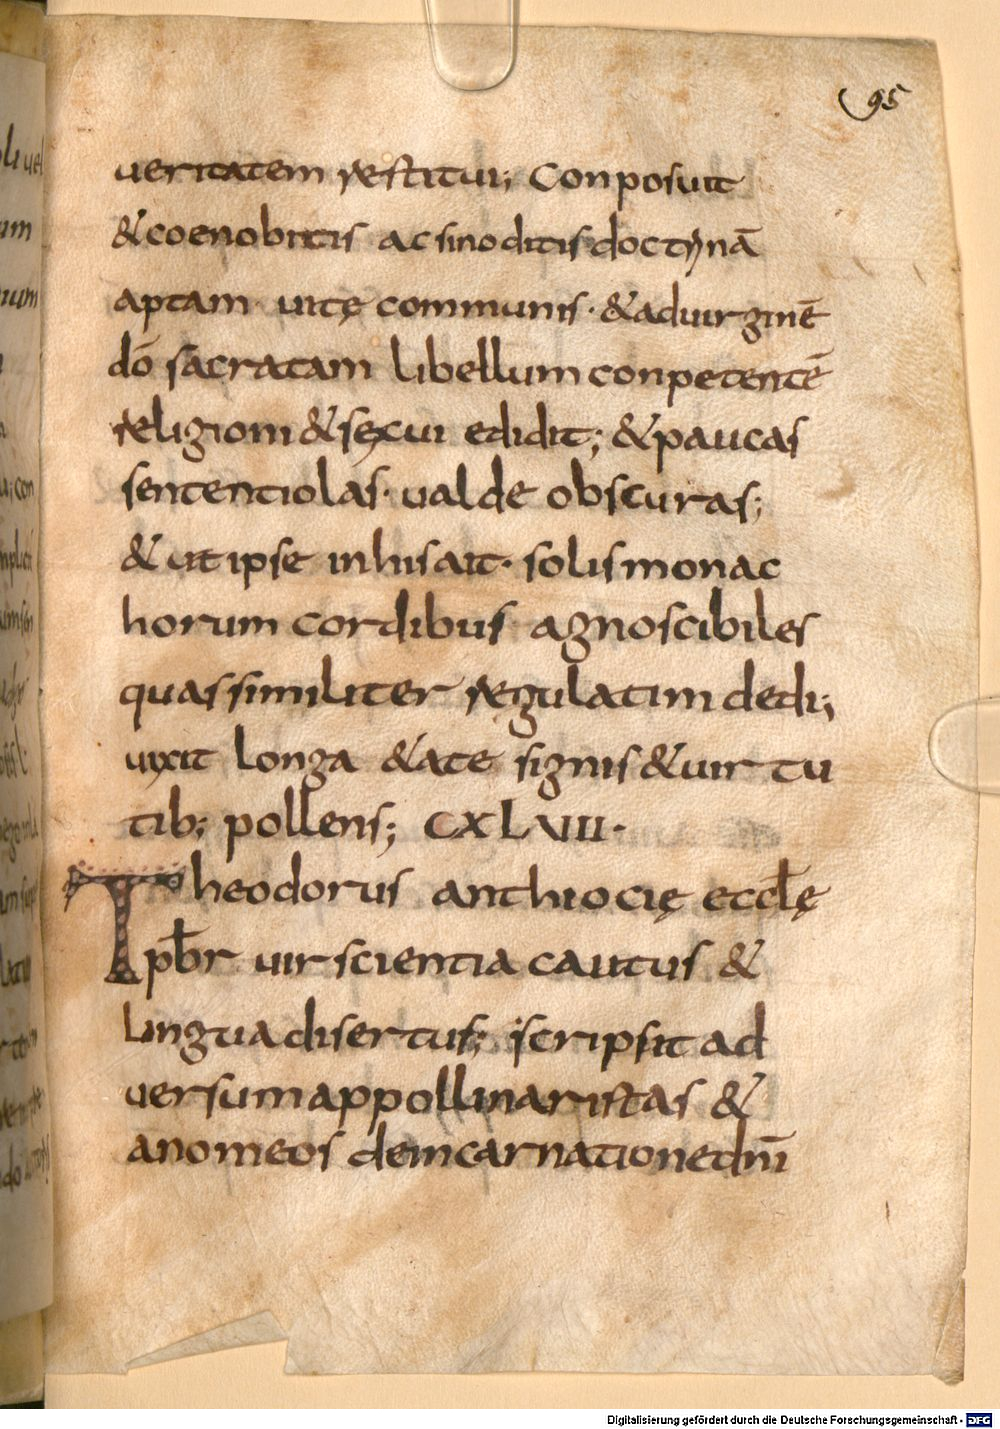 95
ueritatem restitui; Conposuit
&coenobitis ac sinoditis doctrinā
aptam· uitę communis·&aduirginē
dō sacratam libellum conpetentē
religioni &sexui edidit; &paucas
sententiolas· ualde obscuras;
&ut ipse inhis ait· solis monac
horum cordibus agnoscibiles
quas similiter regulatim dedi;
uixit longa &ate signis &uirtu
tib; pollens; CXLVIII·
Theodorus anthiocię eccłę
pb̄r uir scientia cautus &
lingua disertus; scripsit ad
uersum appollinaristas &
anomeos deincarnatione dn̄i
Digitalisierung gefördert durch die Deutsche Forschungsgemeinschaft - DFG